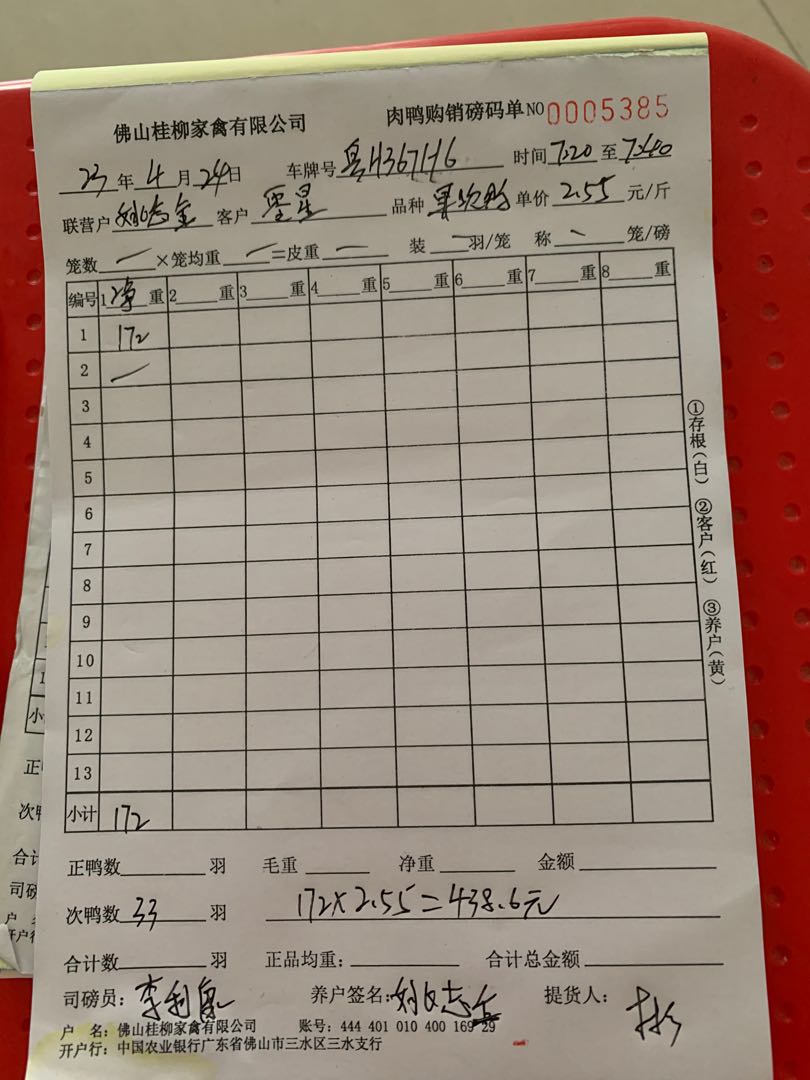 佛山桂柳家禽有限公司 肉鸭购销磅码单NO0005385
23年4月24日 车牌号粤H367H6 时间7:20至7:40
联营户 客户 品种 单价2.55元/斤
笼数×笼均重=皮重 装羽/笼 称笼/磅
编号 1净重 2重 3重 4重 5重 6重 7重 8重
1 172
2
3
4
5
6
7
8
9
10
11
12
13
小计 172
正鸭数羽 毛重 净重 金额
次鸭数33羽 172×2.55=438.6元
合计数羽 正品均重: 合计总金额
司磅员: 养户签名: 提货人:
户 名: 佛山桂柳家禽有限公司 账号: 444 401 010 400 169 29
开户行: 中国农业银行广东省佛山市三水区三水支行
①存根(白) ②客户(红) ③养户(黄)